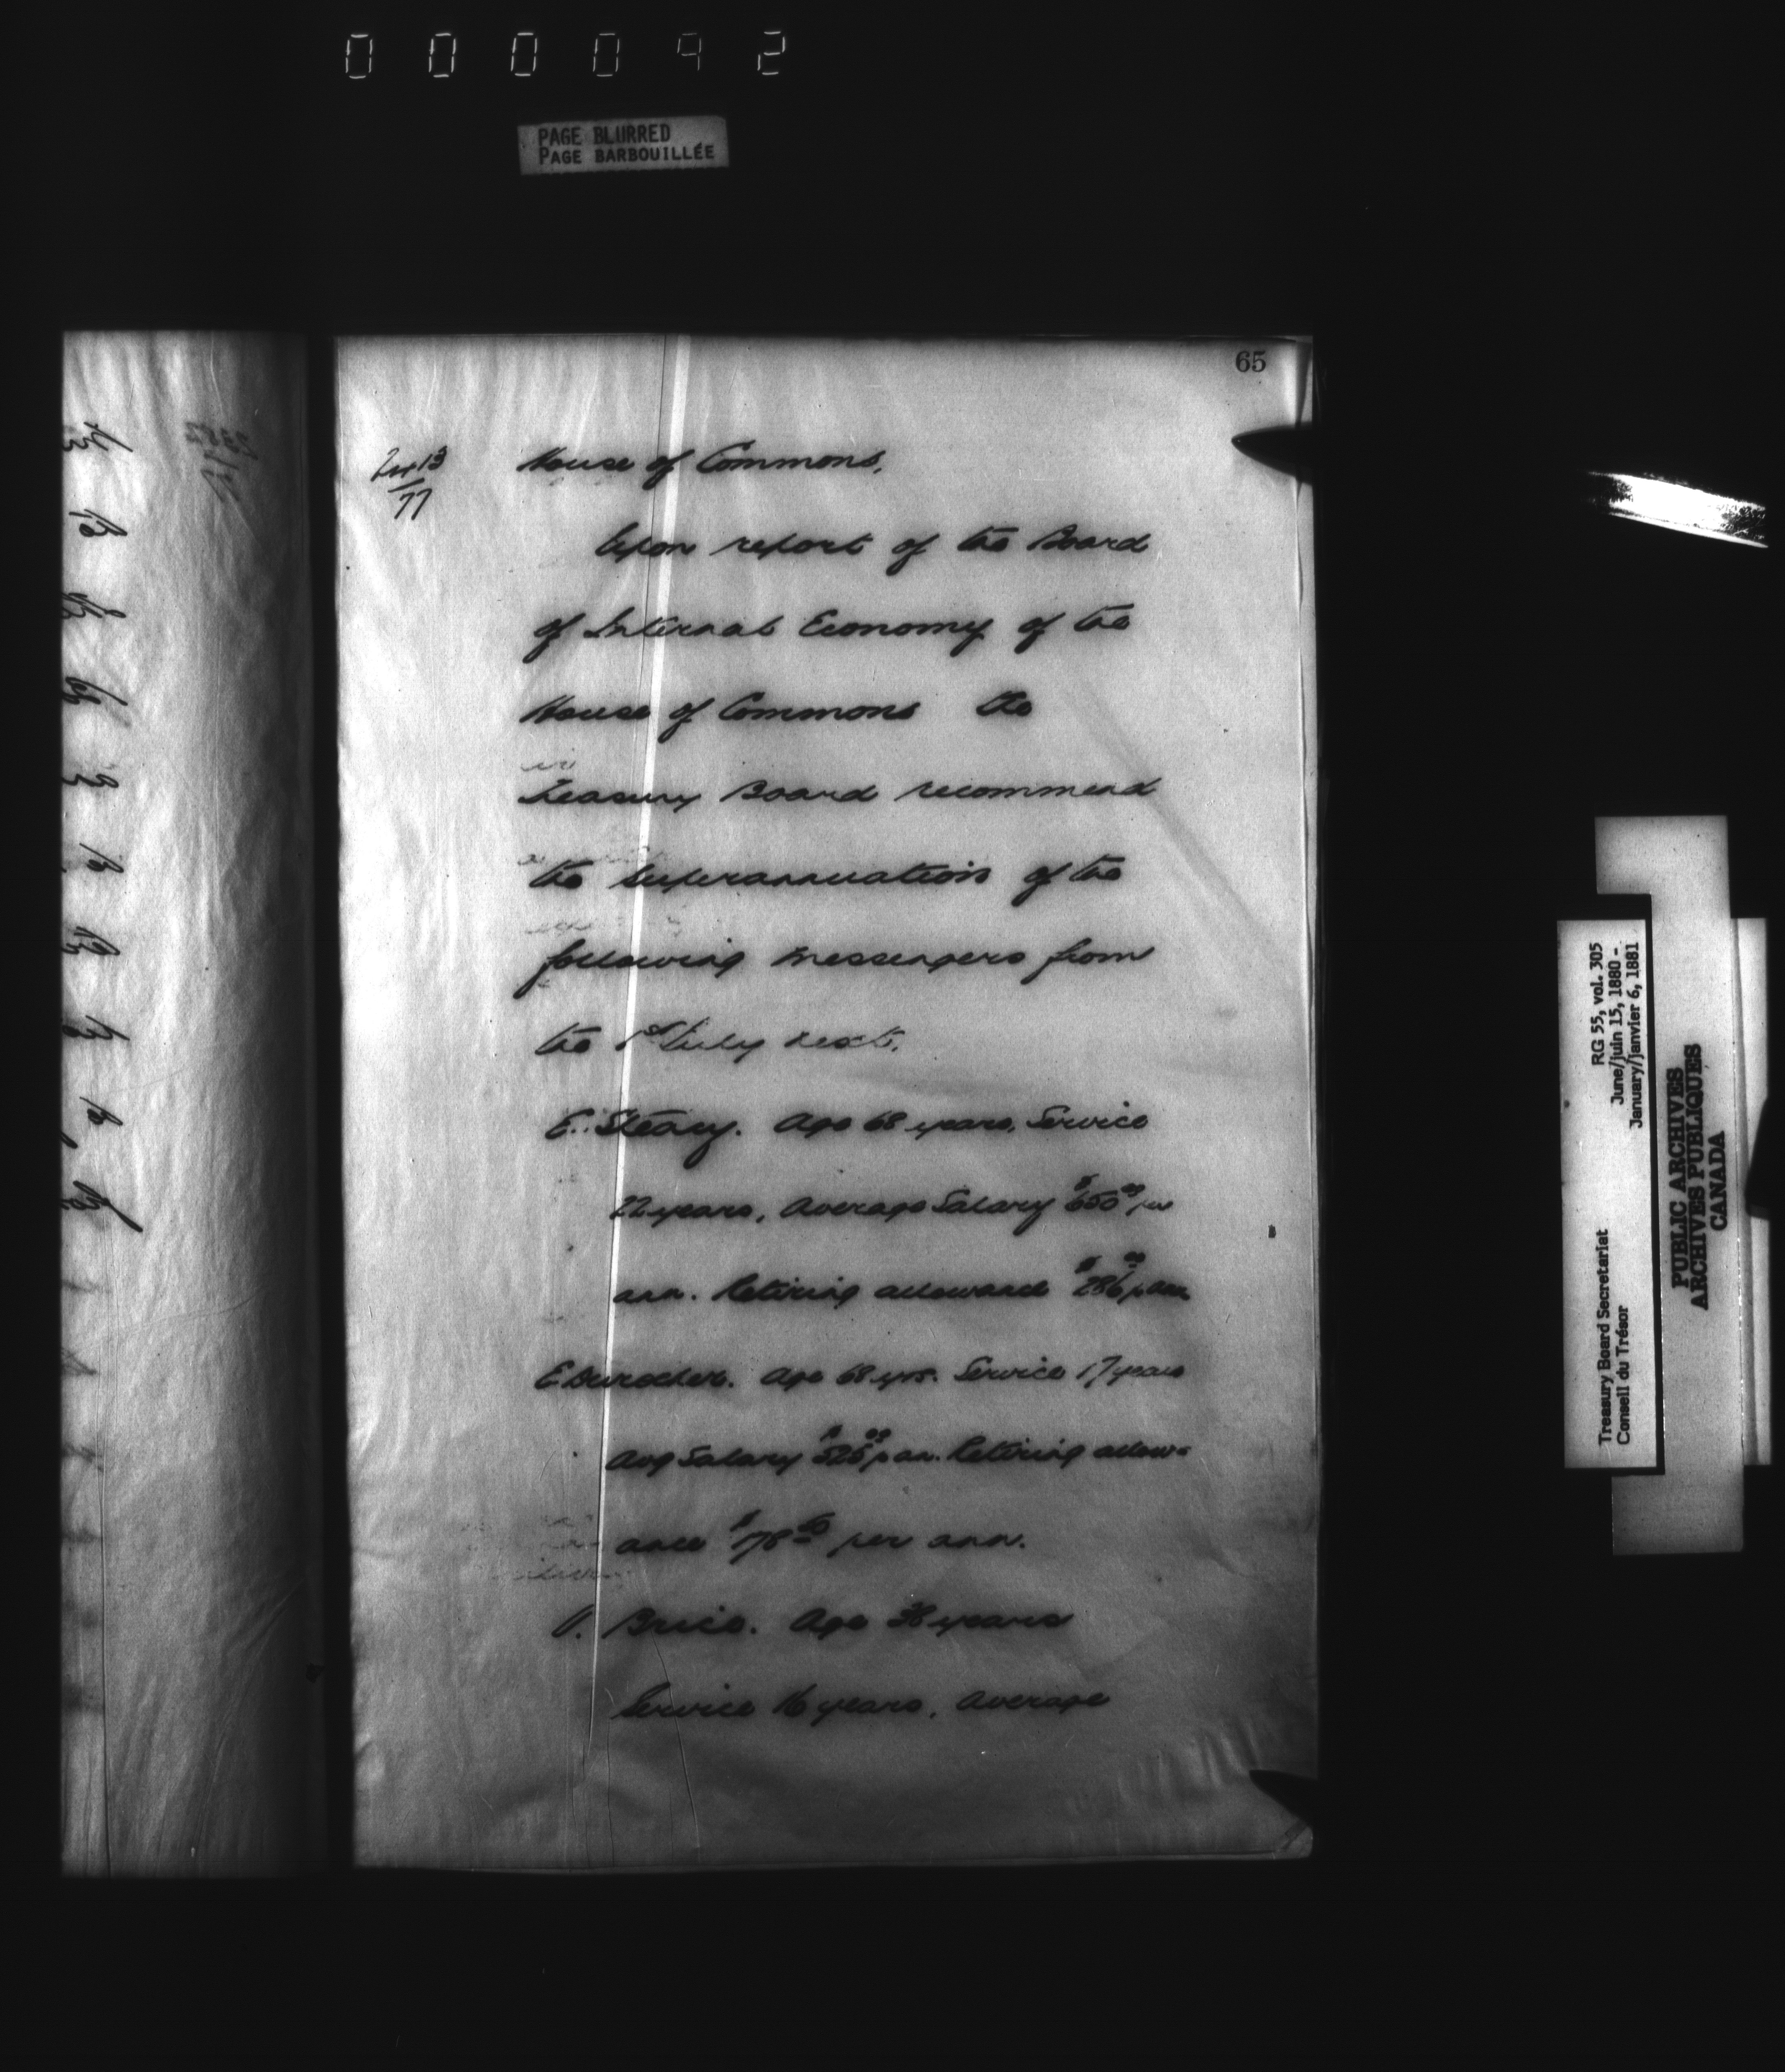 000092
PAGE BLURRED
PAGE BARBOUILLÉE
65
2413
77
House of Commons.
Upon report of the Board
of Internal Economy of the
House of Commons the
Treasury Board recommend
the superannuation of the
following messengers from
the 1st July next.
E. Steacy. Age 68 years, Service
22 years, Average Salary $650 00 per
ann. Retiring allowance $286 00 p ann
E Durocher. Age 68 yrs. Service 17 years
Avg Salary $525 00 p an. Retiring allow-
ance $178 50 per ann.
O. Brico. Age years
Service 16 years, Average
Treasury Board Secretariat
Conseil du Trésor
RG 55, vol. 305
June/juin 15, 1880 -
January/janvier 6, 1881
PUBLIC ARCHIVES
ARCHIVES PUBLIQUES
CANADA